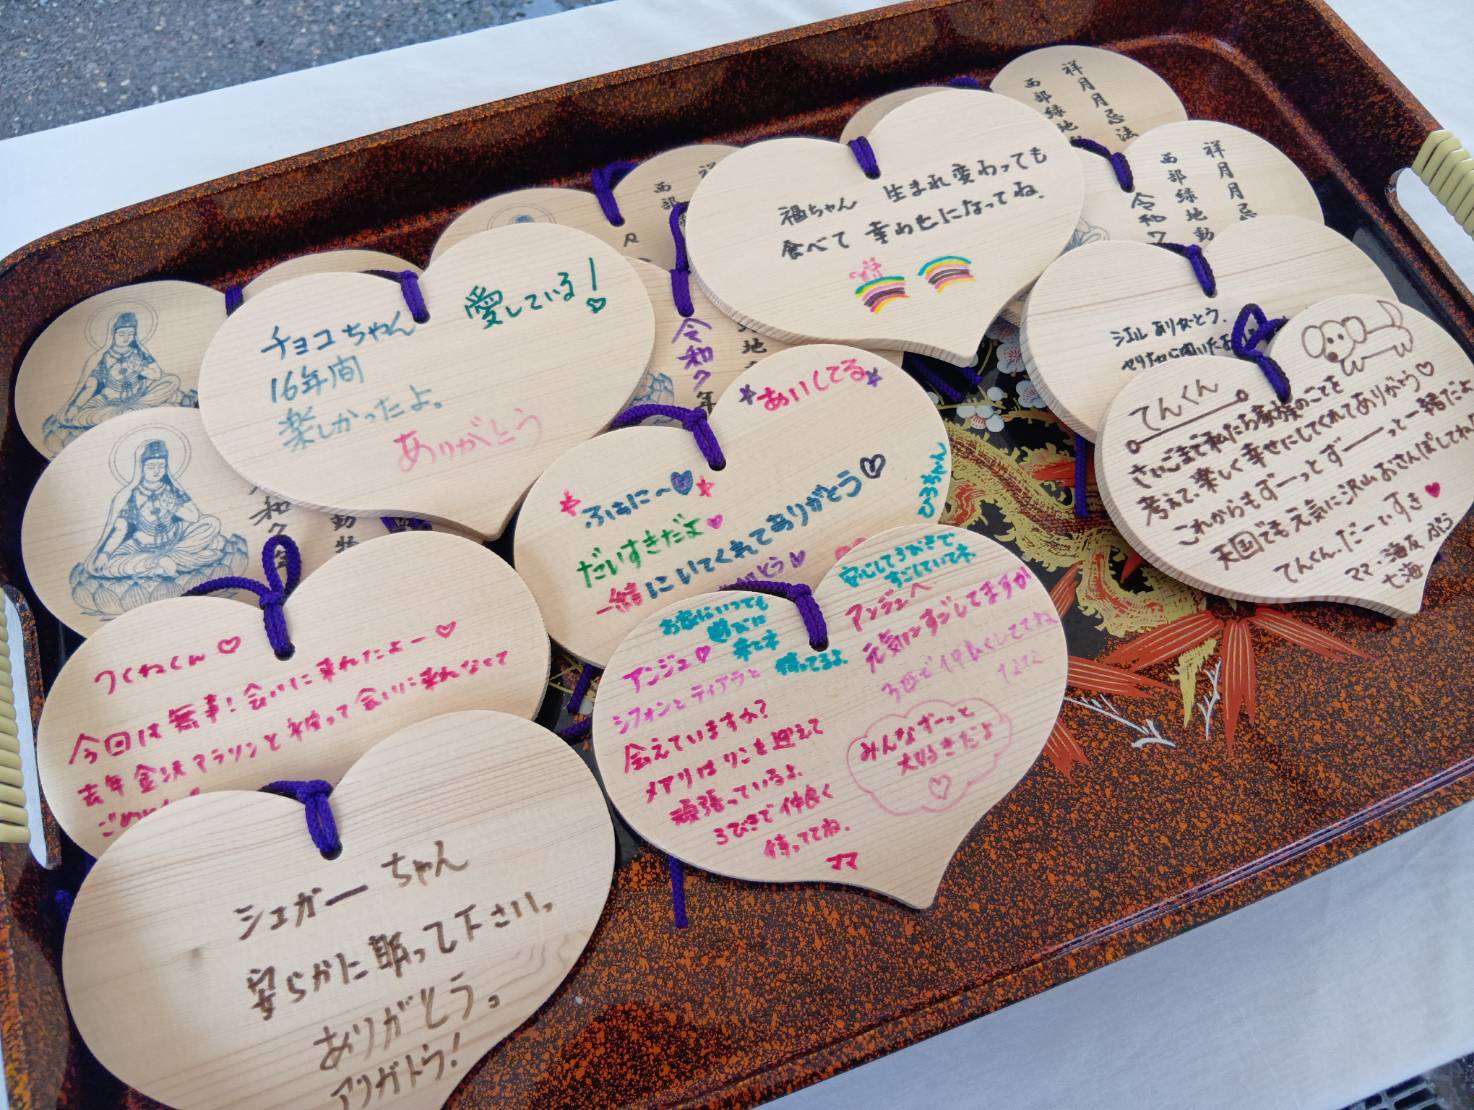 祥月月忌法
西部緑地
祥月月忌
西部緑地動
令和7
西部
福ちゃん 生まれ変わっても
食べて 幸めもになってね、
チョコちゃん
愛している!
16年間
楽しかったよ。
ありがとう
令和7年
地
シエル ありがとう、
てんくん
さいごまで私たち家族のことを
考えて、楽しく幸せにしてくれてありがとう♡
これからもずーっとずーーっと一緒だよ
天国でも元気に沢山おさんぽしてね
てんくん、だーいすき♥
ママ・海友
七海
あいしてる
ふぁに～♡
だいすきだよ♡
一緒にいてくれてありがとう♡
令和7年
動物
つくねくん♡
今回は無事!会いに来れたよー♡
去年金沢マラソンと被って会いに来れなくて
ごめんね
お家にいつでも
遊びに
来てネ
待ってるよ
アンジュ♡
シフォンとティアラと
会えていますか?
メアリはリンを迎えて
頑張っているよ
3びきで仲良く
待っててね、
ママ
安心して3びきで
すごしていてネ
アンジュへ
元気にすごしてますか
3匹で仲良くしててね
なな
みんなずーっと
大好きだよ
♡
シュガーちゃん
安らかに眠って下さい、
ありがとう。
アリガトウ!